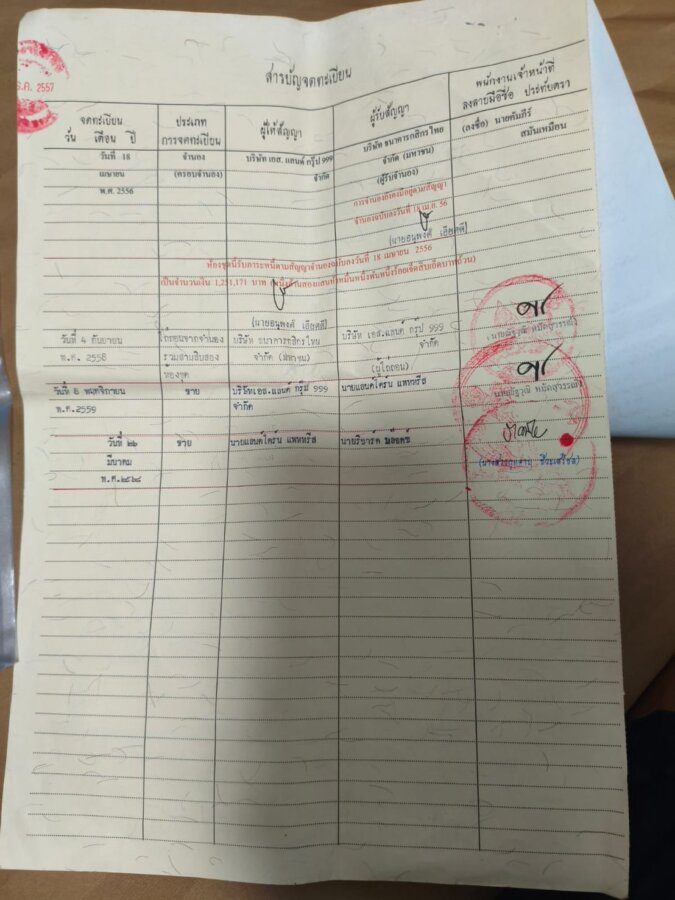 ร.ค. 2557
สารบัญจดทะเบียน
จดทะเบียน
วัน เดือน ปี
ประเภท
การจดทะเบียน
ผู้ให้สัญญา
ผู้รับสัญญา
พนักงานเจ้าหน้าที่
ลงลายมือชื่อ ประทับตรา
วันที่ 18
เมษายน
พ.ศ. 2556
จำนอง
(ครอบจำนอง)
บริษัท เอส. แลนด์ กรุ๊ป 999
จำกัด
บริษัท ธนาคารกสิกรไทย
จำกัด (มหาชน)
(ผู้รับจำนอง)
(ลงชื่อ) นายคัมภีร์
สมันเหมือน
การจำนองยังคงมีอยู่ตามสัญญา
จำนองฉบับลงวันที่ 18 เม.ย. 56
(นายอนุพงศ์ เอียดดี)
ห้องชุดนี้รับภาระหนี้ตามสัญญาจำนองฉบับลงวันที่ 18 เมษายน 2556
เป็นจำนวนเงิน 1,251,171 บาท (หนึ่งล้านสองแสนห้าหมื่นหนึ่งพันหนึ่งร้อยเจ็ดสิบเอ็ดบาทถ้วน)
(นายอนุพงศ์ เอียดดี)
วันที่ 4 กันยายน
พ.ศ. 2558
ไถ่ถอนจากจำนอง
รวมสามสิบสอง
ห้องชุด
บริษัท ธนาคารกสิกรไทย
จำกัด (มหาชน)
บริษัท เอส.แลนด์ กรุ๊ป 999
จำกัด
(ผู้ไถ่ถอน)
วันที่ 8 พฤศจิกายน
พ.ศ. 2559
ขาย
บริษัทเอส.แลนด์ กรุ๊ป 999
จำกัด
นายแอนด์โดร์น แพททริส
วันที่ ๒๖
มีนาคม
พ.ศ.๒๕๖๘
ขาย
นายแอนด์โดร์น แพททริส
นายริชาร์ด